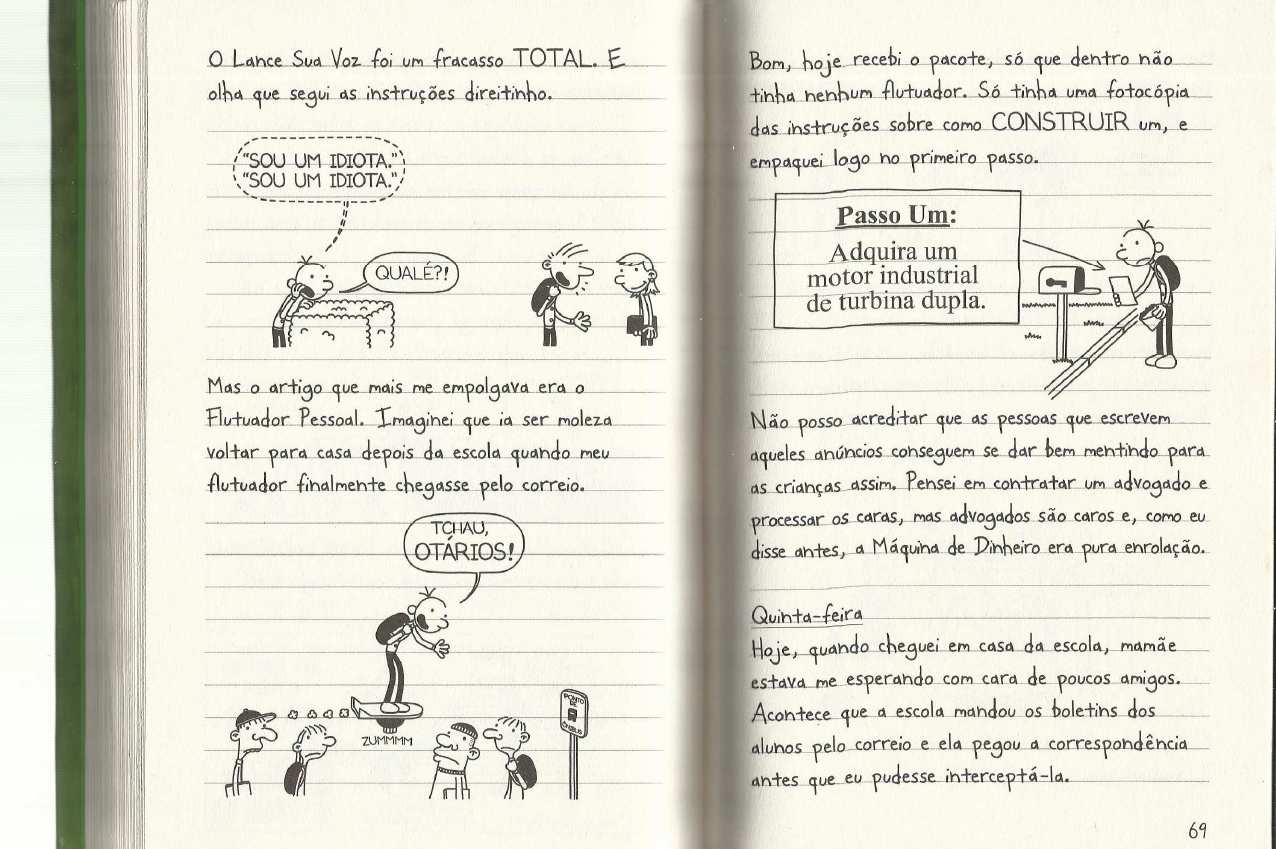 O Lance Sua Voz foi um fracasso TOTAL. E
olha que segui as instruções direitinho.
"SOU UM IDIOTA."
"SOU UM IDIOTA."
QUALÉ?!
Mas o artigo que mais me empolgava era o
Flutuador Pessoal. Imaginei que ia ser moleza
voltar para casa depois da escola quando meu
flutuador finalmente chegasse pelo correio.
TCHAU,
OTÁRIOS!
ZUMMMM
PONTO
DE
ÔNIBUS
Bom, hoje recebi o pacote, só que dentro não
tinha nenhum flutuador. Só tinha uma fotocópia
das instruções sobre como CONSTRUIR um, e
empaquei logo no primeiro passo.
Passo Um:
Adquira um
motor industrial
de turbina dupla.
Não posso acreditar que as pessoas que escrevem
aqueles anúncios conseguem se dar bem mentindo para
as crianças assim. Pensei em contratar um advogado e
processar os caras, mas advogados são caros e, como eu
disse antes, a Máquina de Dinheiro era pura enrolação.
Quinta-feira
Hoje, quando cheguei em casa da escola, mamãe
estava me esperando com cara de poucos amigos.
Acontece que a escola mandou os boletins dos
alunos pelo correio e ela pegou a correspondência
antes que eu pudesse interceptá-la.
69